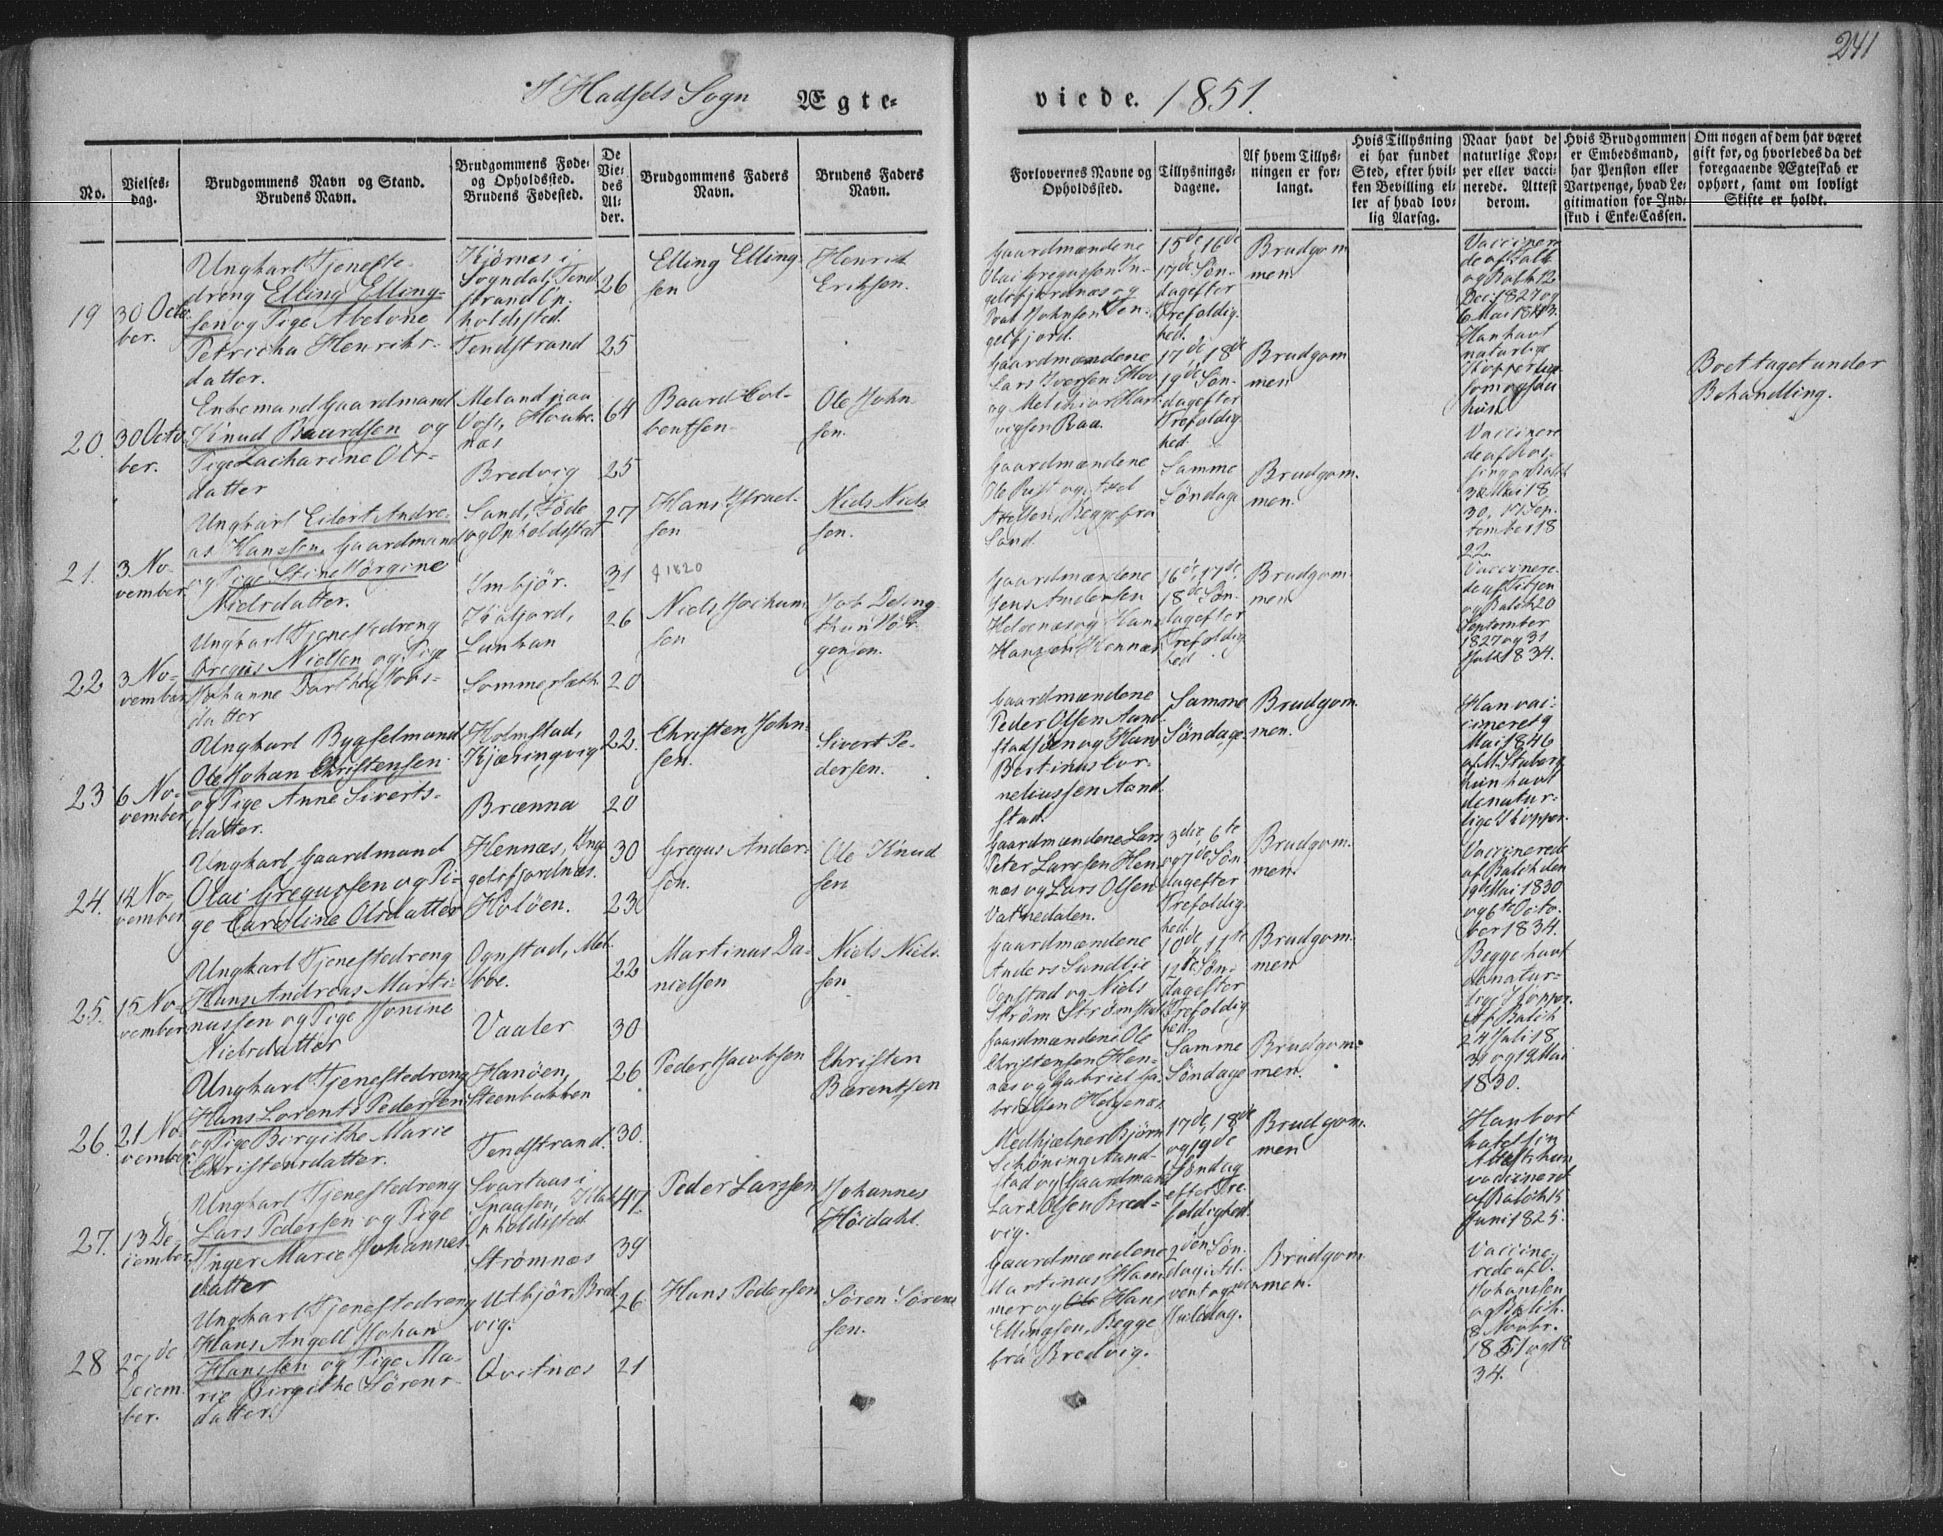 241
I Hadsels Sogn Ægte-
viede. 1851.
No.
Vielses-
dag.
Brudgommens Navn og Stand.
Brudens Navn.
Brudgommens Føde-
og Opholdssted.
Brudens Fødested.
De
Vie-
des
Al-
der.
Brudgommens Faders
Navn.
Brudens Faders
Navn.
Forlovernes Navne og
Opholdssted.
Tillysnings-
dagene.
Af hvem Tillys-
ningen er for-
langt.
Hvis Tillysning
ei har fundet
Sted, efter hvil-
ken Bevilling el-
ler af hvad lov-
lig Aarsag.
Naar havt de
naturlige Kop-
per eller vacci-
nerede. Attest
derom.
Hvis Brudgommen
er Embedsmand,
har Pension eller
Vartpenge, hvad Le-
gitimation for Ind-
skud i Enke-Cassen.
Om nogen af dem har været
gift for, og hvorledes da det
foregaaende Ægteskab er
ophørt, samt om lovligt
Skifte er holdt.
19
30 Octo-
ber.
Ungkarl Tjeneste-
dreng Elling Elling-
sen og Pige Abelone
Petricka Henriks-
datter.
Kjørnæs i
Sogndal, Tend
strand Op-
holdssted.
Tendstrand
26
25
Elling Elling-
sen
Henrik
Eriksen.
Gaardmændene
Olai Gregussen In-
gelsfjordnæs og
Johnsen In-
gelfjord.
15de, 16de
17de Søn-
dag efter
Trefoldig-
hed.
Brudgom
men
Vaccinere
de af Falk
og Balch 12
Dec: 1827 og
6 Mai 1843.
20.
30 Octo-
ber.
Enkemand Gaardmand
Knud Baardsen og
Pige Zacharine Ols-
datter
Meland paa
Vos, Houke-
næs
Bredvig
64
25
Baard Col-
bentsen
Ole John
sen.
Gaardmændene
Lars Iversen Hov
og Melchior Hart
vigsen Raa.
17de, 18de
19de Søn-
dag efter
Trefoldig-
hed.
Brudgom
men
Han havt
naturlige
Kopper lige
som ogsaa
hun
Boet taget under
Behandling.
21.
3 No-
vember
Ungkarl Eilert Andre-
as Hanssen, Gaardmand
og Pige Stine Jørgine
Nielsdatter.
Sand, Føde
og Opholdssted
Imbjør.
27
31
Hans Israel-
sen
f 1820
Niels Niels
sen.
Gaardmændene
Ole Rist og Axel
Axelsen, Begge fra
Sand.
Samme
Søndage
Brudgom.
men.
Vaccinere
de af
og Balch
3 Mai 18
30, 17 Sep-
tember 18
22.
22
3 No-
vember
Ungkarl Tjenestedreng
Gregus Nielsen og Pige
Johanne Dorthea Jobs-
datter
Lunkan
Sommersæth
26
20
Niels Jochum
sen
Job
gensen.
Gaardmændene
Jens Andersen
Helgenæs og Hans
Hanssen Hennæs
16de, 17de,
18de Søn-
dag efter
Trefoldig
hed
Brudgom-
men
Vaccinere-
de af
og Balch 20
September
1827 og 31
Juli 1834.
23
6 No-
vember
Ungkarl Bygselmand
Ole Johan Christensen
og Pige Anne Siverts-
datter.
Holmstad,
Kjæringvig
Brænna
22.
20
Christen John-
sen.
Sivert Pe-
dersen.
Gaardmændene
Peder Olsen Aand
stadsjøen og Hans
Bertinus Cor-
neliussen Aand
stad.
Samme
Søndage.
Brudgom
men.
Han vac-
cineret 9
Mai 1846
af M. Staberg
hun havt
de natur-
lige Kopper.
24.
14 No-
vember
Ungkarl, Gaardmand
Olai Gregussen og Pi-
ge Caroline Olsdatter
Hennæs, Inge
gelsfjordnæs.
Holøen.
30
23
Gregus Ander-
sen.
Ole Knud
sen
Gaardmændene Lars
Peter Larssen Hen-
næs og Lars Olsen
Vatnedalen.
3die, 6te
og 7de Søn-
dag efter
Trefoldig
hed.
Brudgom-
men.
Vaccinered
af Balch den
19de Mai 1830
og 6te Octo-
ber 1834.
25.
15 No-
vember
Ungkarl Tjenestedreng
Hans Andreas Marti-
nussen og Pige Jonine
Nielsdatter
Ognstad, Mel-
boe.
Vaaler
22
30
Martinus Da-
nielsen
Niels Niels
sen.
Gaardmændene
Anders Sundlie
Ognstad og Niels
Strøm Strømstad
10de, 11te
12te Søn-
dag efter
Trefoldig
hed.
Brudgom-
men
Begge havt
de natur-
lige Kopper.
26.
21 No-
vember
Ungkarl Tjenestedreng
Hans Lorents Pedersen
og Pige Birgithe Marie
Christensdatter.
Hanøen,
Steenbakken
Tendstrand.
26
30.
Peder Jacobsen
Christen
Bærentsen
Gaardmændene Ole
Christensen Hen-
næs og Gabriel Ga-
brielsen Helgenæs
Samme
Søndage
Brudgom-
men.
Af Balch
24 Juli 18
31 og 19 Mai
1830.
27.
13 De-
cember
Ungkarl Tjenestedreng
Lars Pedersen og Pige
Inger Marie Johannes-
datter
Svartaas i
Snaasen,
Opholdssted
Strømnæs
47
39
Peder Larssen
Johannes
Høidahl.
Medhjælper Bjørn
Schøning Aand-
stad og Gaardmand
Lars Olsen Bred-
vig.
17de, 18de
og 19de
Søndag
efter Tre-
foldighed.
Brudgom.
men
Han bort
sin
Attest, hun
vaccineret
af Balch 15
Juni 1825.
28
27de
Decem-
ber.
Ungkarl Tjenestedreng
Hans Angell Johan
Hanssen og Pige Ma-
rie Birgithe Sørens-
datter.
Utbjør, Bred-
vig.
Qvitnæs
26
21
Hans Pedersen
Søren Sørens
sen.
Gaardmændene
Martinus Ham
mer og Hans
Ellingsen, Begge
fra Bredvig.
2den Søn-
dag i Ad-
vent og
Juledag.
Brudgom
men.
Vaccine-
rede af O.
Johansen
og Balch.
8 Novbr.
1851 og 18
34.